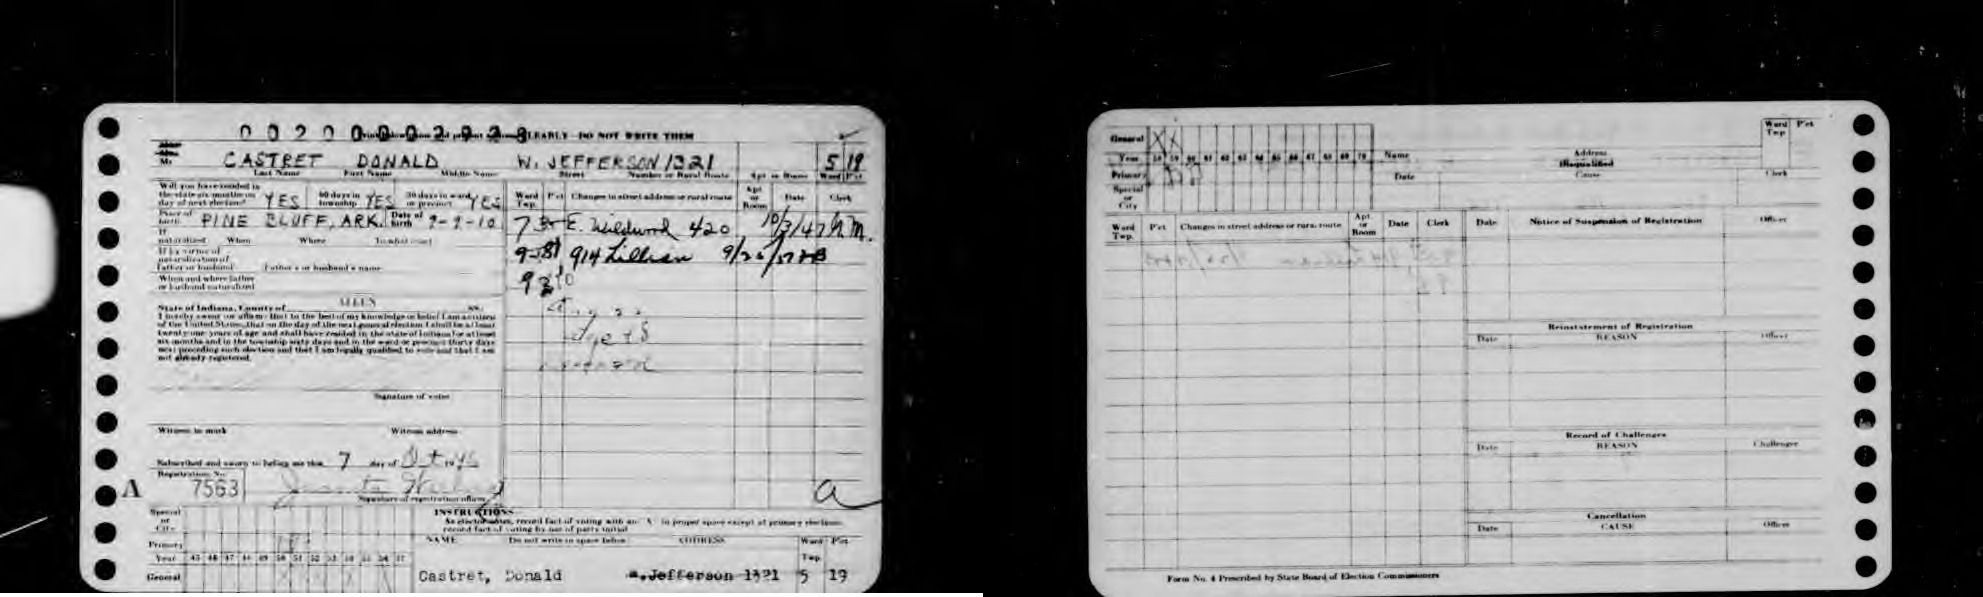 0 0 2 0 0 0 0 2 9 2 8 CLEARLY - DO NOT WRITE THEM
Mr. CASTRET DONALD W. JEFFERSON 1321 5 19
Last Name First Name Middle Name Street Number or Rural Route Apt or Room Ward P'ct
Will you have resided in the state six months on day of next election? YES 60 days in township YES 30 days in ward or precinct YES
Ward Twp. P'ct Changes in street address or rural route Apt or Room Date Clerk
Place of birth PINE BLUFF, ARK. Date of birth 9-9-10
E. Wildwood 420 10/3/47 N.M.
If naturalized When Where To what court
914 Lillian
If by virtue of naturalization of Father or husband Father's or husband's name
When and where father or husband naturalized
State of Indiana, County of ALLEN SS:
I hereby swear (or affirm) that to the best of my knowledge or belief I am a citizen
of the United States, that on the day of the next general election I shall be at least
twenty-one years of age and shall have resided in the state of Indiana for at least
six months and in the township sixty days and in the ward or precinct thirty days
next preceding such election and that I am legally qualified to vote and that I am
not already registered.
Signature of voter
Witness to mark Witness address
Subscribed and sworn to before me this 7 day of Oct 1946
Registration No.
A 7563
Signature of registration officer
a
INSTRUCTIONS
As elector votes, record fact of voting with an "X" in proper space except at primary elections,
record fact of voting by use of party initial
Special or City
Primary
Year 45 46 47 48 49 50 51 52 53 54 55 56 57
General
NAME Do not write in space below ADDRESS Ward Twp. P'ct
Castret, Donald W. Jefferson 1321 5 19
General X X
Year 58 59 60 61 62 63 64 65 66 67 68 69 70
Primary
Special or City
Name Address Ward Twp P'ct
Disqualified
Date Cause Clerk
Ward Twp. P'ct Changes in street address or rural route Apt or Room Date Clerk
Date Notice of Suspension of Registration Officer
Reinstatement of Registration
Date REASON Officer
Record of Challenges
Date REASON Challenger
Cancellation
Date CAUSE Officer
Form No. 4 Prescribed by State Board of Election Commissioners